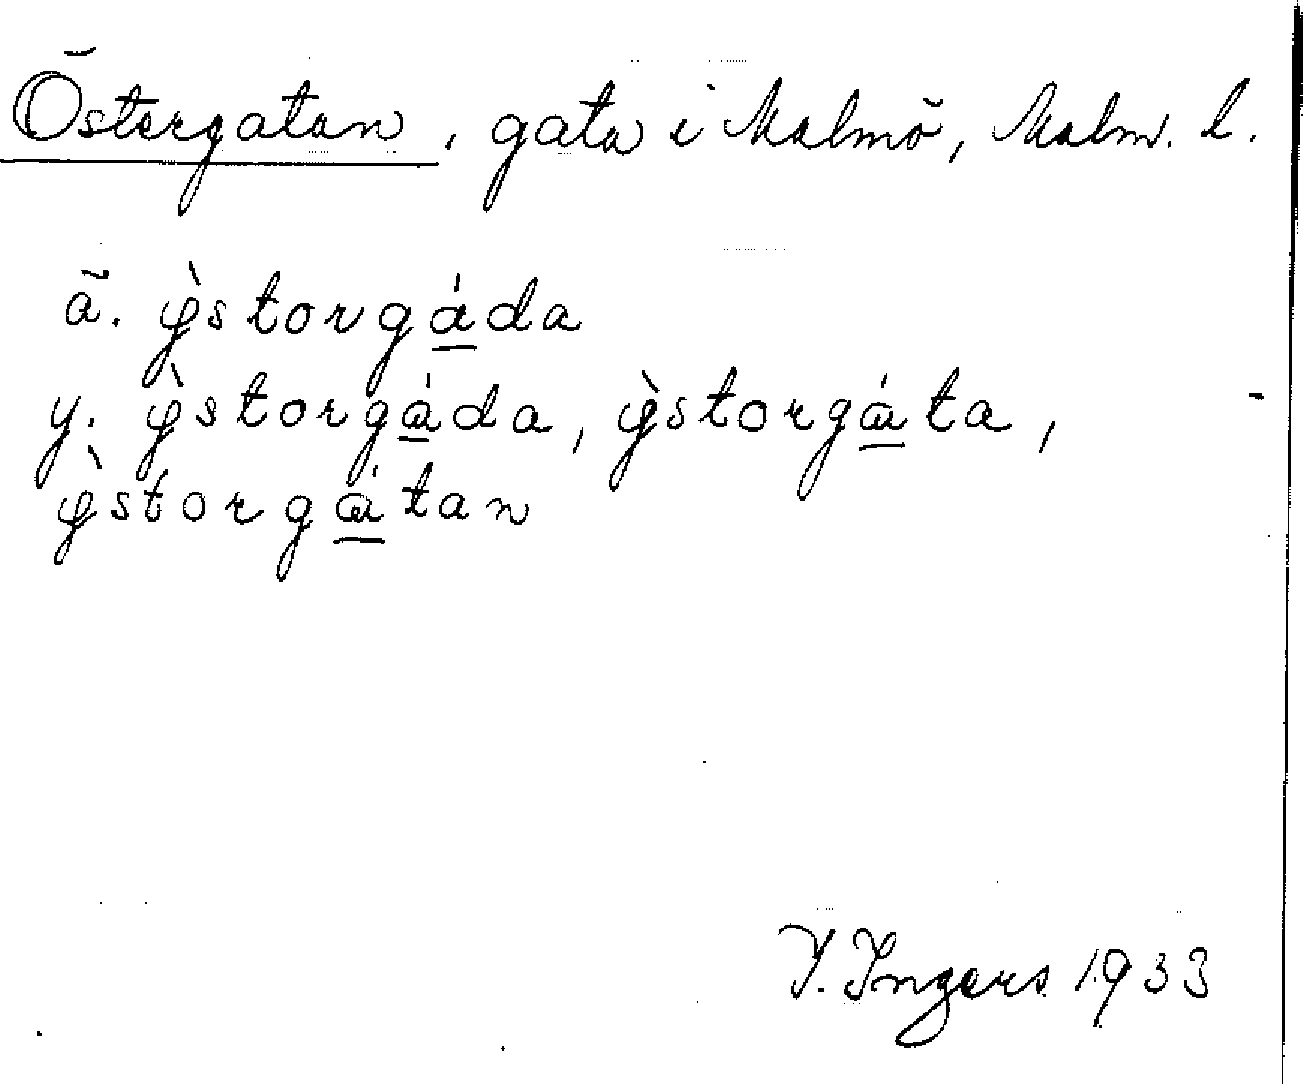 Östergatan, gata i Malmö, Malm. l.
ä. φ̀storgá̱da
y. φ̀storgá̱da, φ̀storgá̱ta,
φ̀storgá̱tan
I. Ingers 1933